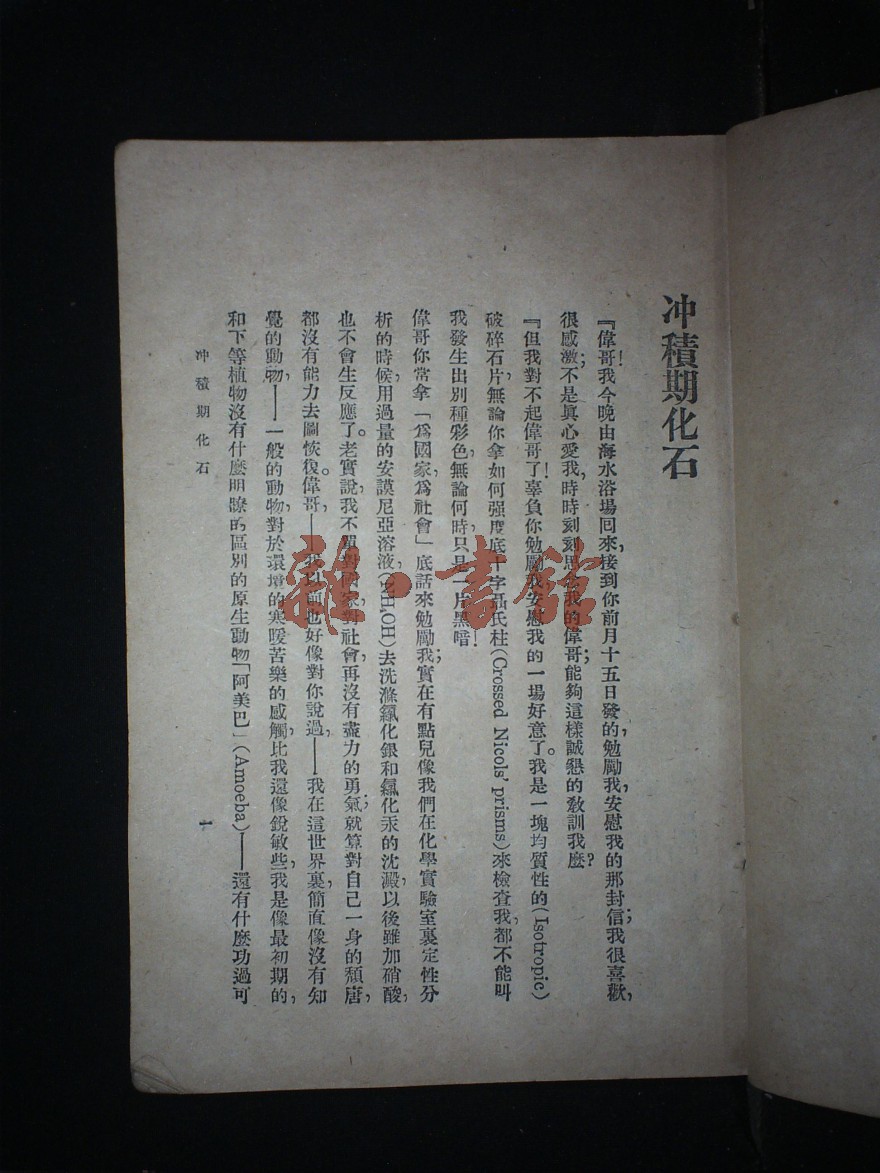 冲積期化石
『偉哥!我今晚由海水浴場回來,接到你前月十五日發的,勉勵我,安慰我的那封信;我很喜歡,
很感激;不是眞心愛我,時時刻刻思念我的偉哥;能夠這樣誠懇的敎訓我麽?
『但我對不起偉哥了!辜負你勉勵我安慰我的一場好意了。我是一塊均質性的(Isotropic)
破碎石片,無論你拿如何强度底十字聶氏柱(Crossed Nicols' prisms)來檢查我,都不能叫
我發生出別種彩色,無論何時只是一片黑暗!
偉哥你常拿「爲國家,爲社會」底話來勉勵我;實在有點兒像我們在化學實驗室裏定性分
析的時候,用過量的安謨尼亞溶液,(NH₄OH)去洗滌氯化銀和氯化汞的沈澱,以後雖加硝酸,
也不會生反應了。老實說,我不單對國家,對社會,再沒有盡力的勇氣;就算對自己一身的頹唐,
都沒有能力去圖恢復。偉哥,——我以前也好像對你說過,——我在這世界裏,簡直像沒有知
覺的動物,——一般的動物,對於環境的寒暖苦樂的感觸,比我還像銳敏些,我是像最初期的,
和下等植物沒有什麽明瞭的區別的原生動物「阿美巴」(Amoeba)——還有什麽功過可
冲積期化石
1
雜·書館